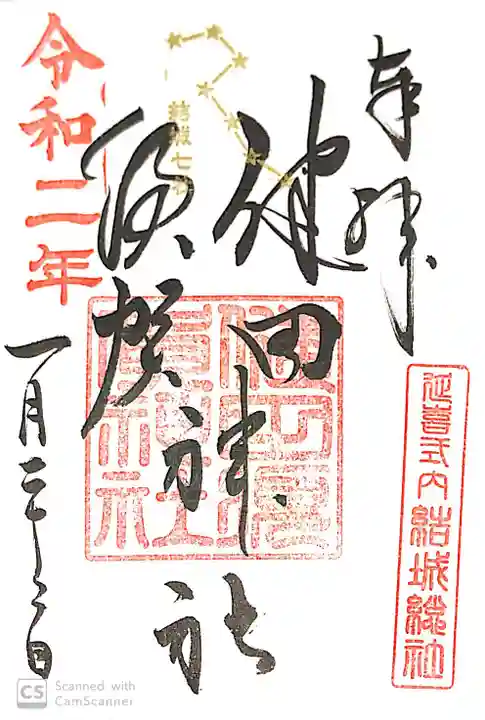 奉拝
延喜式内結城総社
健田
須賀神社
社
結城七社
令和二年
一月三十一日
CS Scanned with
CamScanner